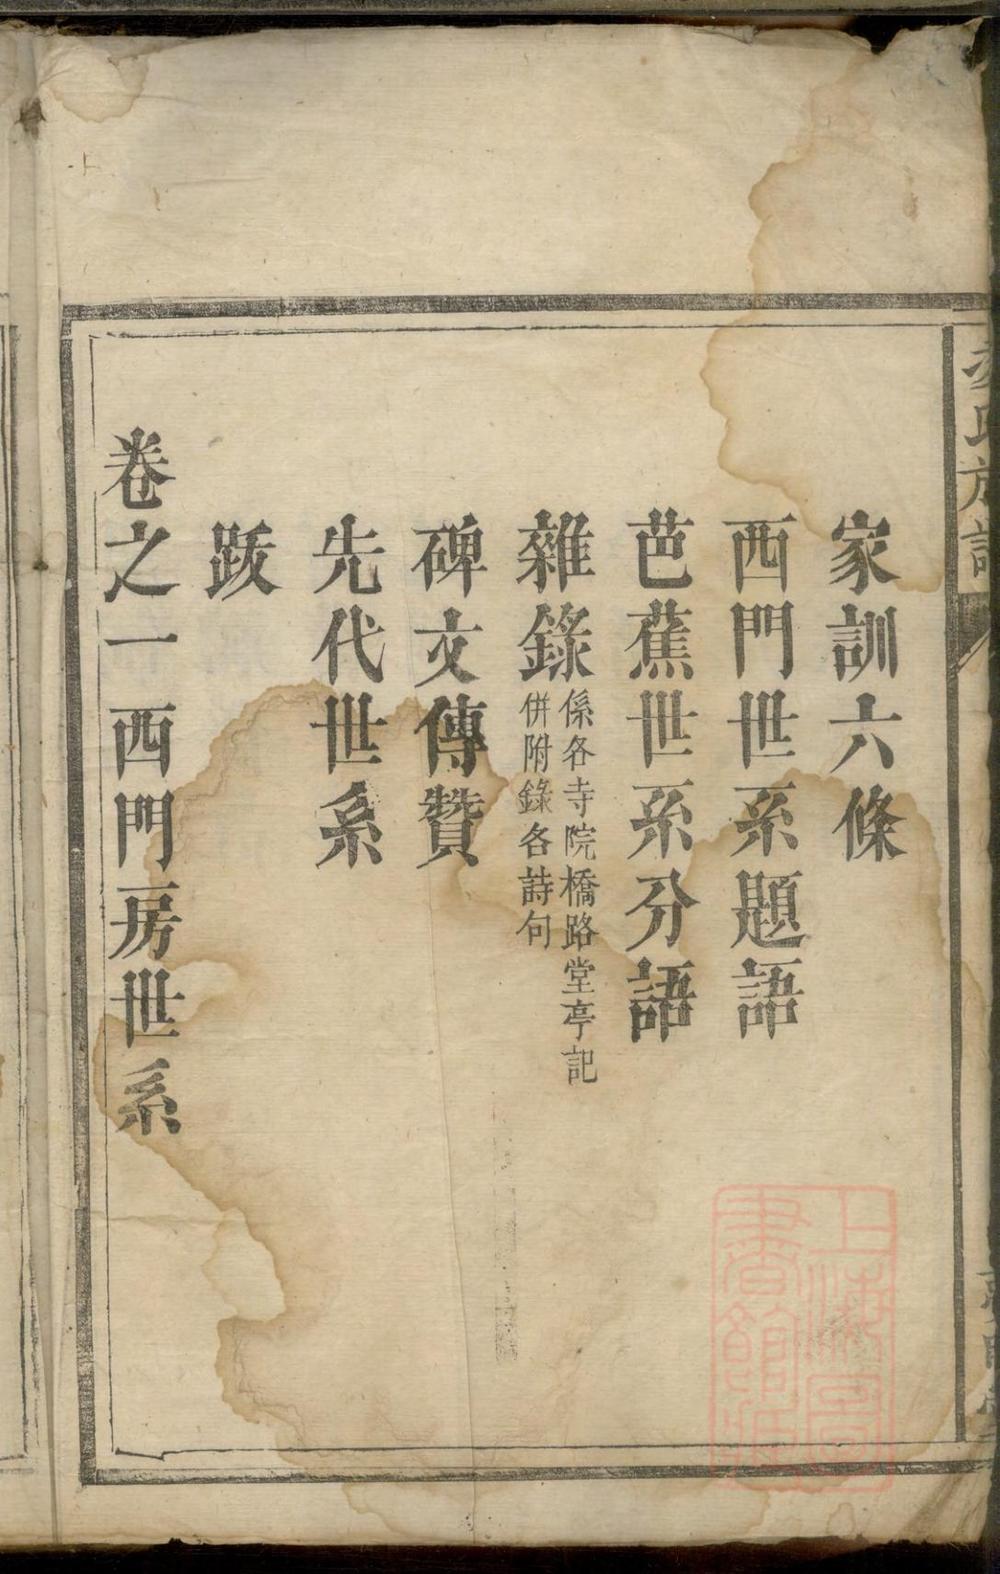 家訓六條
西門世系題語
芭蕉世系分語
雜錄
係各寺院橋路堂亭記
併附錄各詩句
碑文傳贊
先代世系
跋
卷之一西門房世系
上海圖書館藏